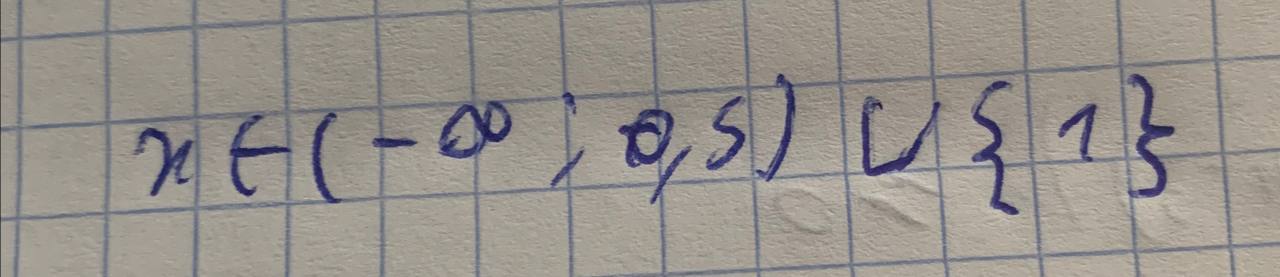 x∈(-∞; 0,5) ∪ {1}